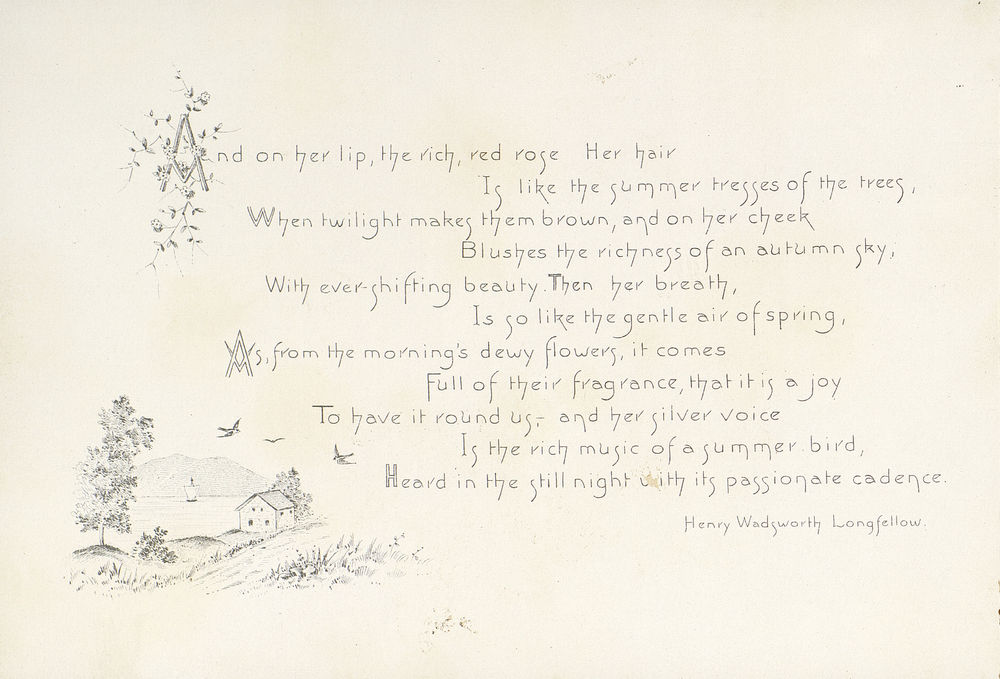 And on her lip, the rich, red rose Her hair
Is like the summer tresses of the trees,
When twilight makes them brown, and on her cheek
Blushes the richness of an autumn sky,
With ever-shifting beauty. Then her breath,
Is so like the gentle air of spring,
As, from the morning's dewy flowers, it comes
Full of their fragrance, that it is a joy
To have it round us,- and her silver voice
Is the rich music of a summer bird,
Heard in the still night with its passionate cadence.
Henry Wadsworth Longfellow.